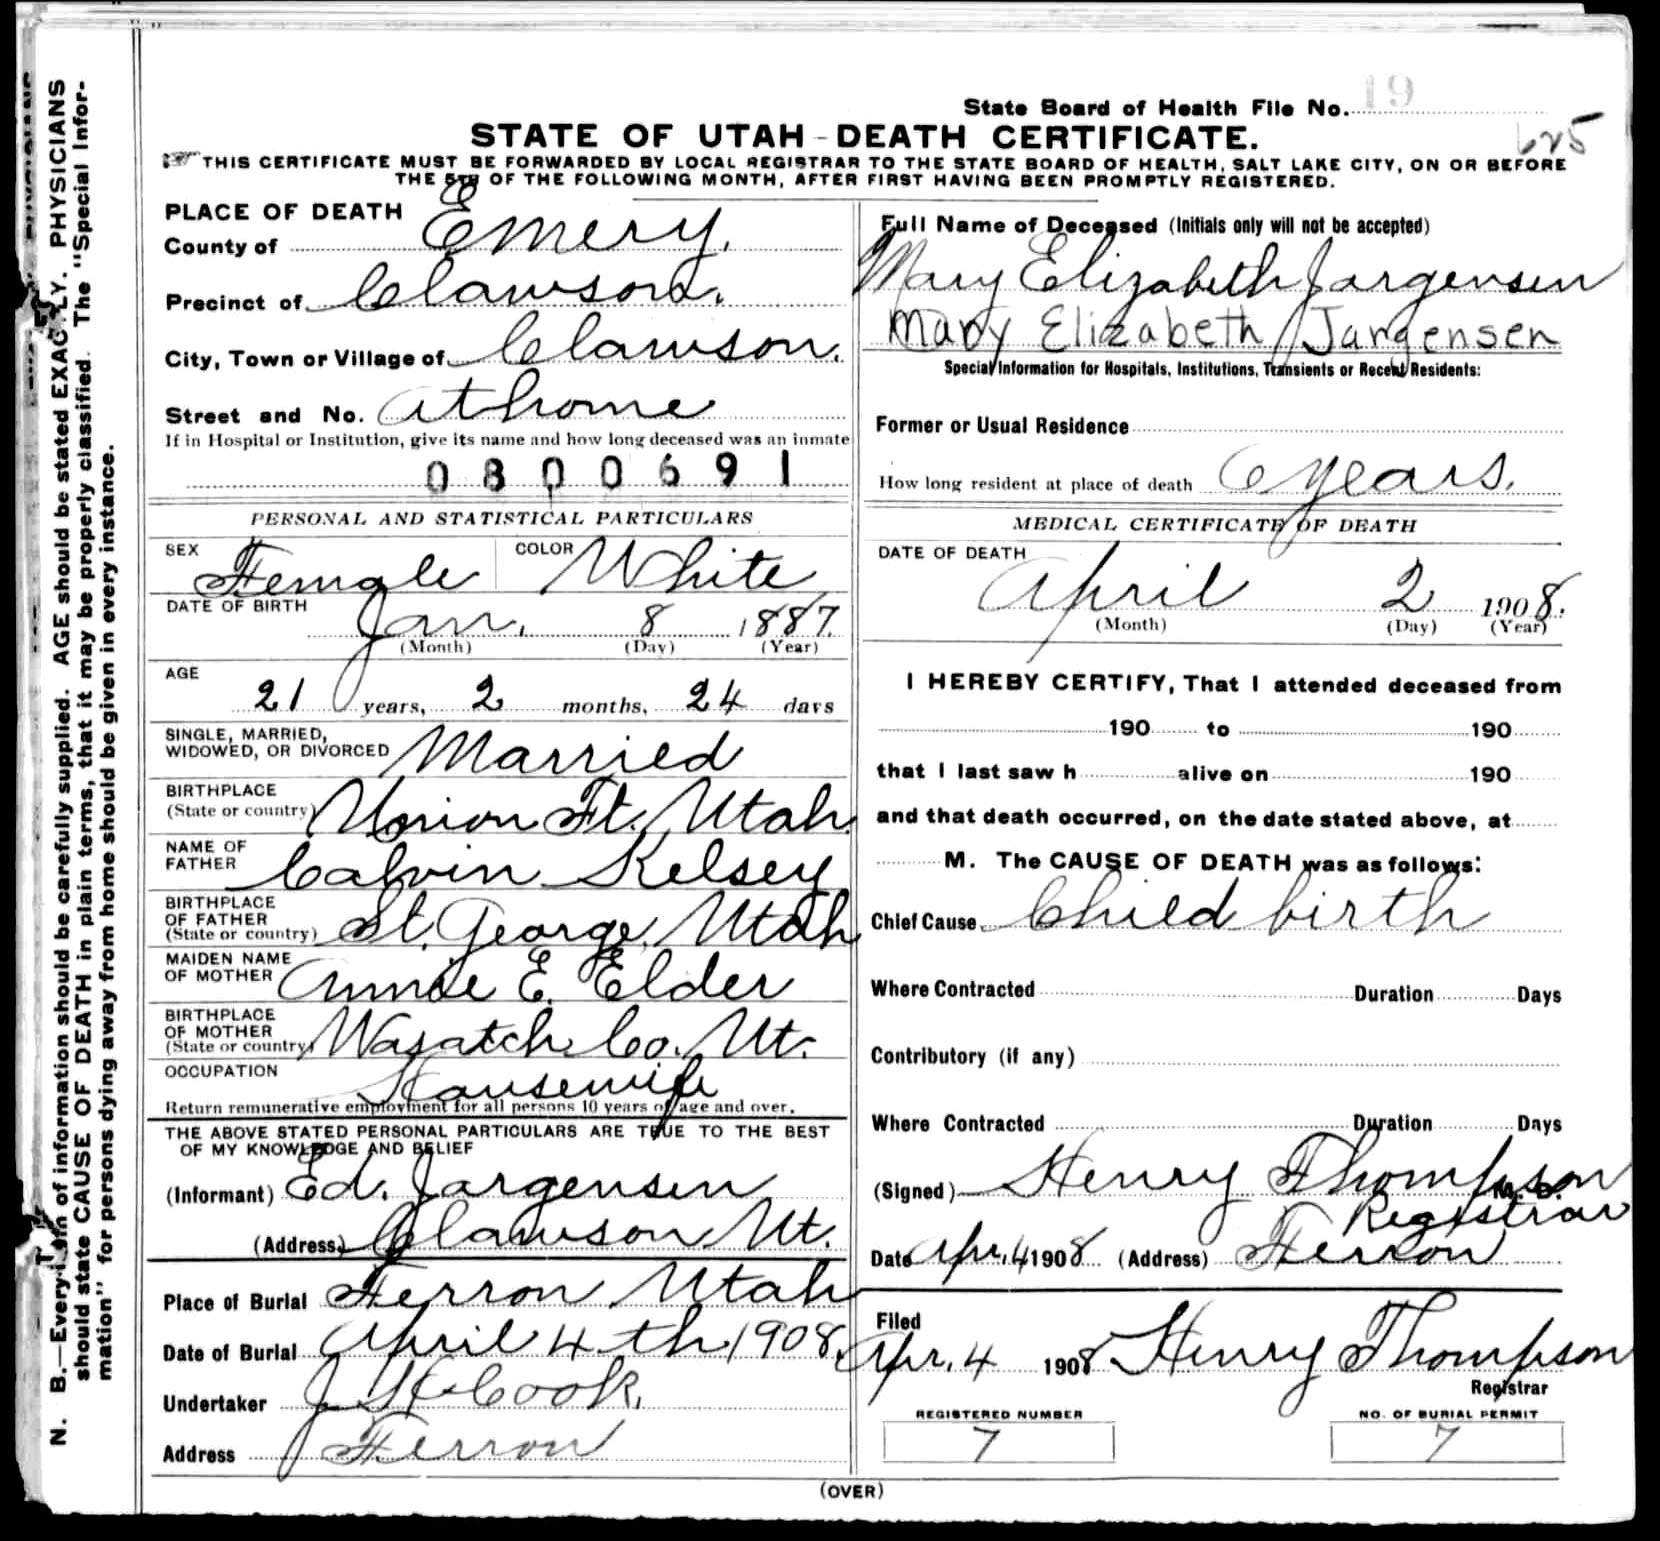 State Board of Health File No. 19
STATE OF UTAH - DEATH CERTIFICATE.
625
THIS CERTIFICATE MUST BE FORWARDED BY LOCAL REGISTRAR TO THE STATE BOARD OF HEALTH, SALT LAKE CITY, ON OR BEFORE
THE 5TH OF THE FOLLOWING MONTH, AFTER FIRST HAVING BEEN PROMPTLY REGISTERED.
PLACE OF DEATH
County of Emery.
Precinct of Clawson.
City, Town or Village of Clawson.
Street and No. at home
If in Hospital or Institution, give its name and how long deceased was an inmate
0800691
PERSONAL AND STATISTICAL PARTICULARS
SEX Female COLOR White
DATE OF BIRTH Jan. 8 1887.
(Month) (Day) (Year)
AGE
21 years, 2 months, 24 days
SINGLE, MARRIED,
WIDOWED, OR DIVORCED Married
BIRTHPLACE
(State or country) Union Ft. Utah.
NAME OF
FATHER Calvin Kelsey
BIRTHPLACE
OF FATHER
(State or country) St. George, Utah
MAIDEN NAME
OF MOTHER Annie E. Elder
BIRTHPLACE
OF MOTHER
(State or country) Wasatch Co. Ut.
OCCUPATION Housewife
Return remunerative employment for all persons 10 years of age and over.
THE ABOVE STATED PERSONAL PARTICULARS ARE TRUE TO THE BEST
OF MY KNOWLEDGE AND BELIEF
(Informant) Ed. Jargensen
(Address) Clawson Ut.
Place of Burial Ferron Utah
Date of Burial April 4th 1908.
Undertaker J. H. Cook.
Address Ferron
Full Name of Deceased (Initials only will not be accepted)
Mary Elizabeth Jargensen
Mary Elizabeth Jargensen
Special Information for Hospitals, Institutions, Transients or Recent Residents:
Former or Usual Residence
How long resident at place of death 6 years.
MEDICAL CERTIFICATE OF DEATH
DATE OF DEATH
April 2 1908.
(Month) (Day) (Year)
I HEREBY CERTIFY, That I attended deceased from
190 to 190
that I last saw h alive on 190
and that death occurred, on the date stated above, at
M. The CAUSE OF DEATH was as follows:
Chief Cause Child birth
Where Contracted Duration Days
Contributory (if any)
Where Contracted Duration Days
(Signed) Henry Thompson M. D.
Registrar
Date Apr. 4 1908 (Address) Ferron
Filed
Apr. 4 1908 Henry Thompson
Registrar
REGISTERED NUMBER
7
NO. OF BURIAL PERMIT
7
(OVER)
N. B.—Every item of information should be carefully supplied. AGE should be stated EXACTLY. PHYSICIANS
should state CAUSE OF DEATH in plain terms, that it may be properly classified. The "Special Infor-
mation" for persons dying away from home should be given in every instance.